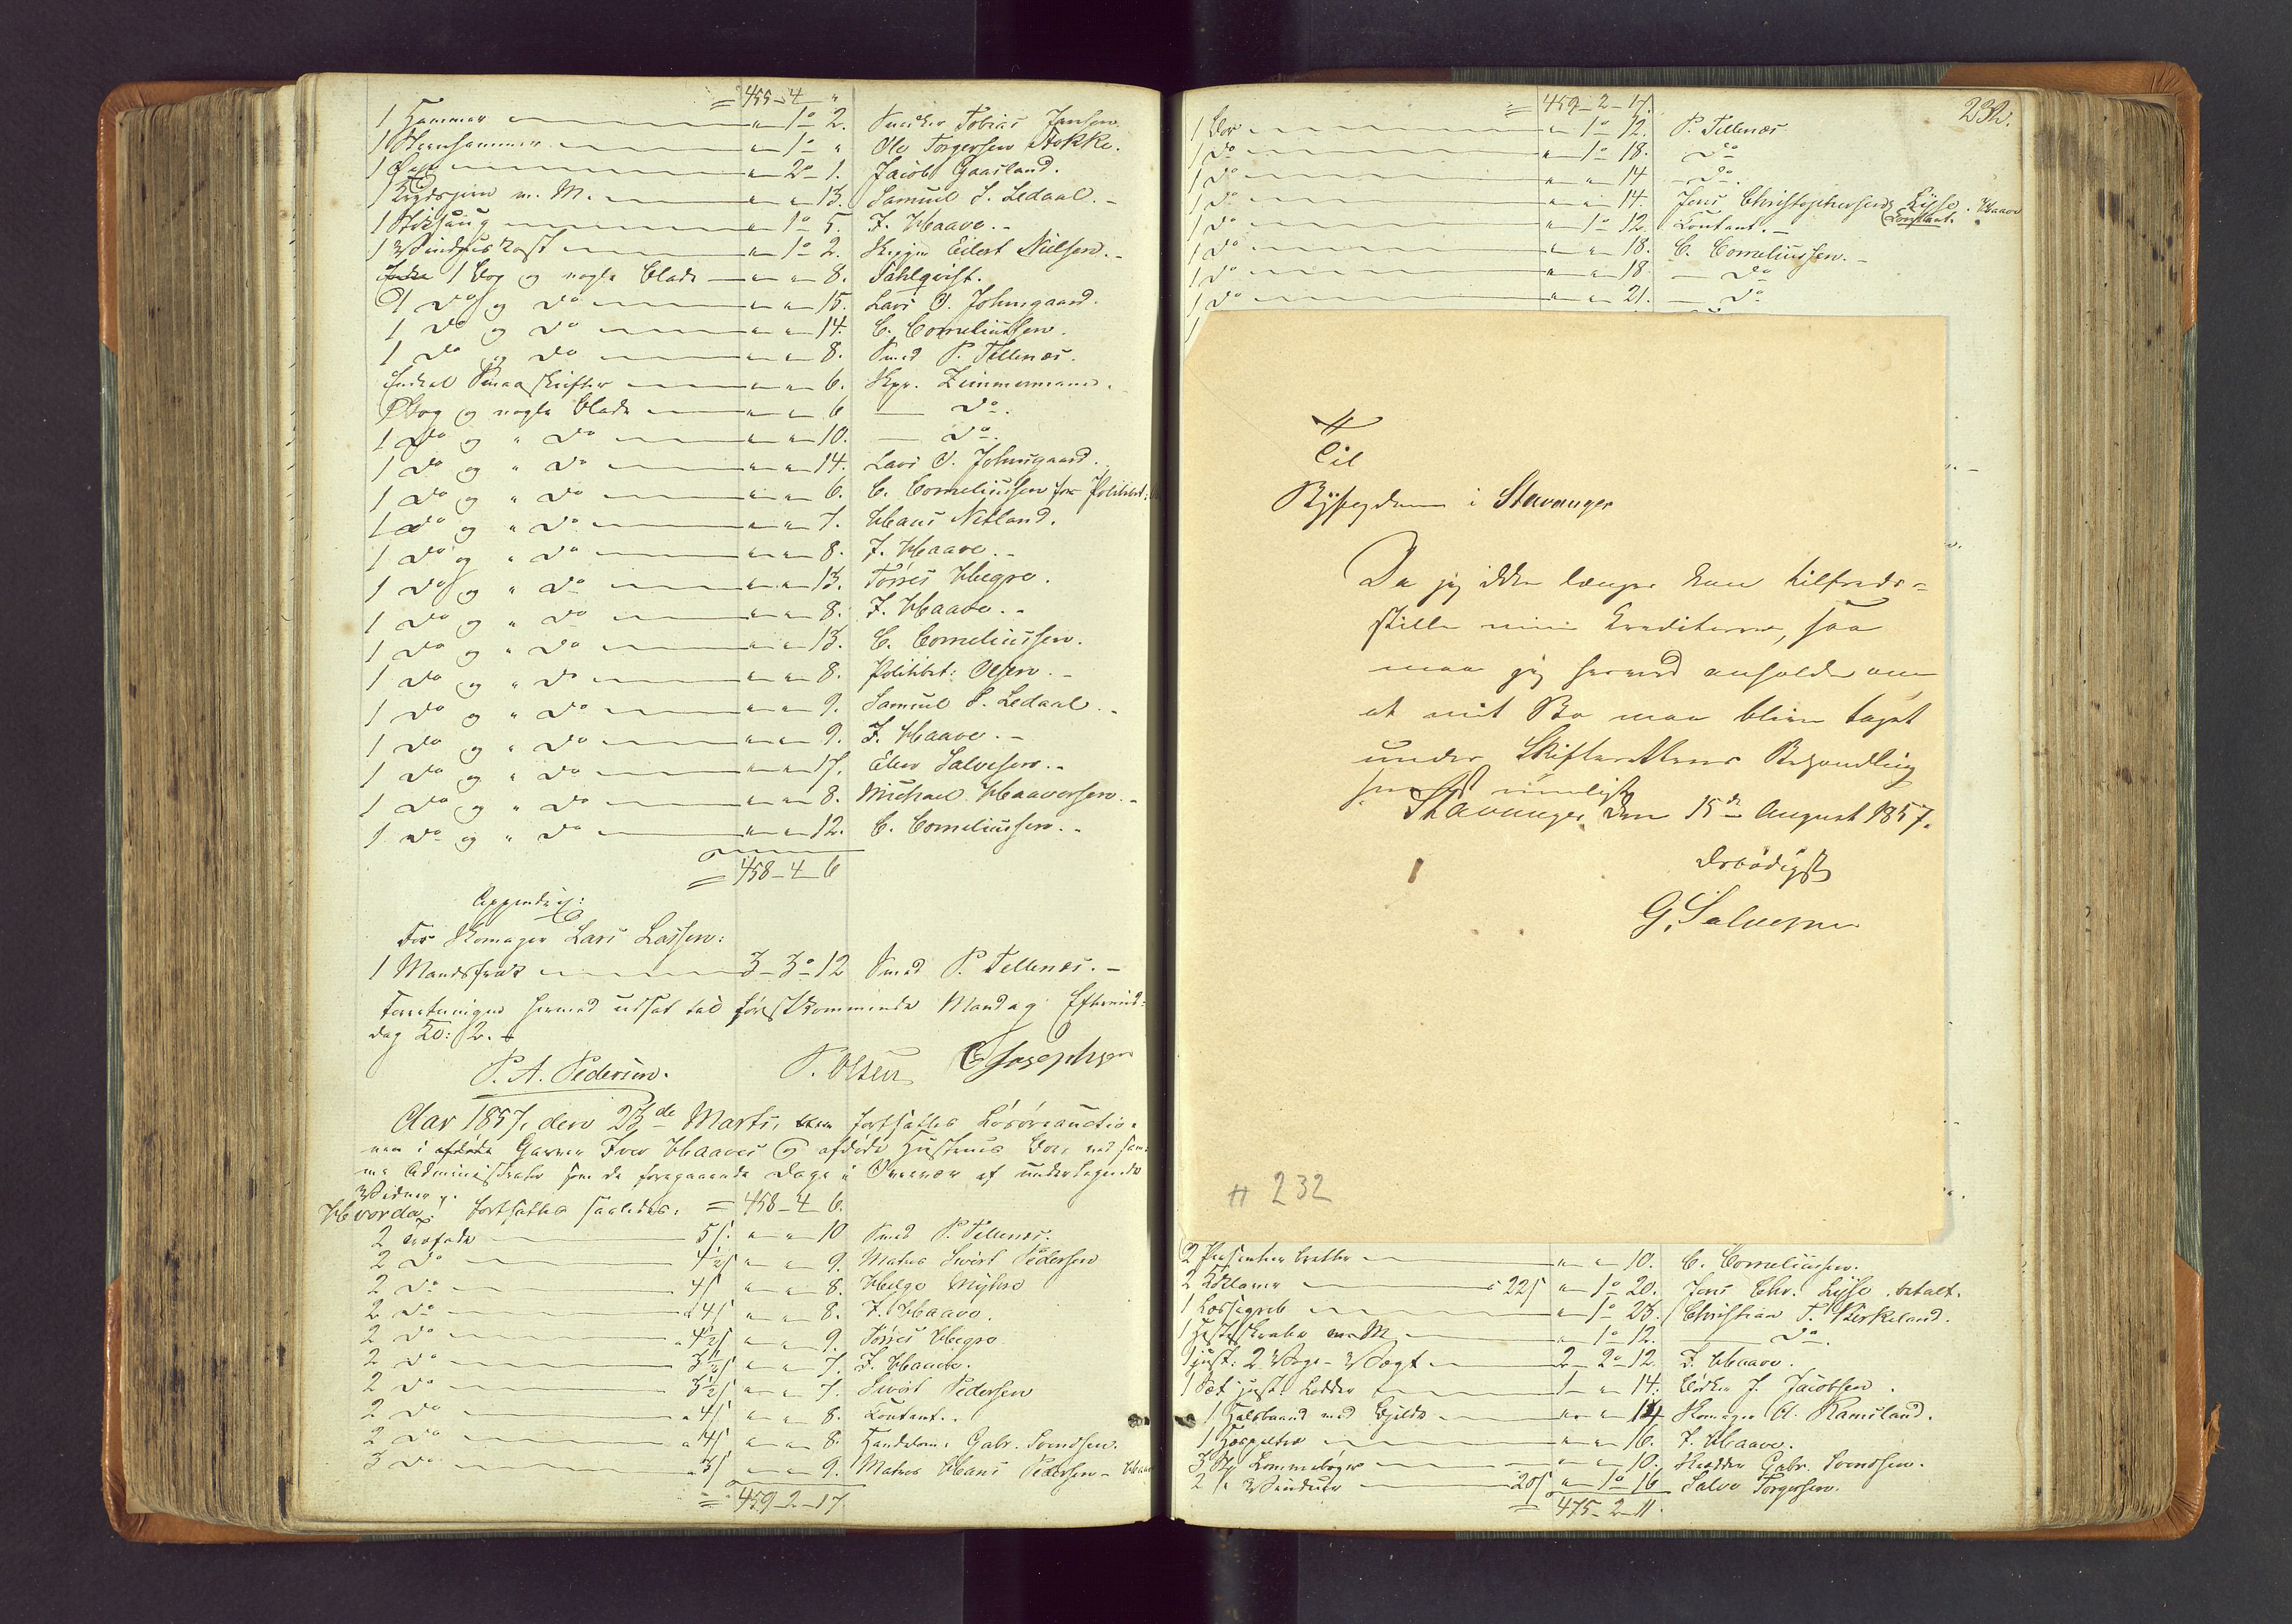 = 455-4-"
1 Hammer " 1° 2. Snedker Tobias Jansen.
1 Steenhammer " 1° " Ole Torgersen Stokke.
1 " 2° 1. Jacob Gausland.
1 m. M. " " 13. Samuel S. Ledaal.-
1 Stiksaug " 1° 5. J. Haave.-
1 " 1° 2. Eilert Nielsen.-
1 Bog og nogle Blade " " 8. Sahlqvist.
1 do og do " " 15. Lars O. Johnsgaard.
1 do og do " " 14. C. Corneliussen.
1 do og do " " 8. Smed P. Tellenæs.
Endeel Smaaskrifter " " 6. Skpr. Zimmermann.
1 Bog og nogle Blade " " 6 — do.
1 do og " do " " 10. — do.
1 do og " do " " 14. Lars O. Johnsgaard.
1 do og " do " " 6. C. Corneliussen for Politibet:
1 do og " do " " 7. Hans Netland.
1 do og " do " " 8. J. Haave.-
1 do og " do " " 13. Törres Hegre.
1 do og " do " " 8. J. Haave.-
1 do og " do " " 13. C. Corneliussen.
1 do og " do " " 8. Politibet: Olsen.-
1 do og " do " " 9. Samuel S. Ledaal.-
1 do og " do " " 9. J. Haave.-
1 do og " do " " 17. Elen Salvesen.-
1 do og " do " " 8. Michael Haaversen.-
1 do og " do " " 12. C. Corneliussen.-
= 458-4-6
Appendix:
For Skomager Lars Lassen:
1 Mandsfrak 3-3°-12 Smed P. Tellenæs.-
Forretningen hermed udsat til förstkommende Mandag Eftermid-
dag Kl: 2.
P. A. Pedersen. P. Olsen C Josephsen
Aar 1857, den 23de Marts, fortsattes Lösöreauctio-
nen i Garver Iver Haaves og afdöde Hustrues Bo, ved sam-
me Administrator som de foregaaende Dage i Overvær af undertegnede
Vidner.
Hvorda: fortsattes saaledes: = 458-4-6.
2 5ß. " " 10 Smed P. Tellenæs.
2 do 4½ß " " 9. Matros Sivert Pedersen
2 do 4ß " " 8. Helge Myhre
2 do a 4ß " " 8. J. Haave.
2 do a 4½ß " " 9. Törres Hegre
2 do 3½ß " " 7. J. Haave.
2 do 3½ß " " 7. Sivert Pedersen
2 do a 4ß " " 8. Contant.-
2 do a 4ß " " 8. Handelsm: Gabr. Svendsen.
3 do a 3ß " " 9. Matros Hans Pedersen - Haave
= 459-2-17
232.
= 459-2-17.
1 " 1° 12. P. Tellenæs
1 do " 1° 18. do
1 do " " 14 — do.
1 do " " 14. Jens Christophersen Lyse. Haave
1 do " 1° 12. Contant.- Contant.
1 do " " 18. C. Corneliussen.-
1 do " " 18 — do
1 do " " 21. — do
Til
Byfogden i Stavanger
Da jeg ikke længer kan tilfreds-
stille mine Kreditorer, saa
maa jeg herved anholde om
at mit Bo maa blive taget
under Skifterettens Behandling
snarest muligt
Stavanger, den 15de August 1857.
Ærbödigst
G. Salvesen
# 232
2 Presenteerbretter " " 10. C. Corneliussen.
2 a 22ß " 1° 20. Jens Chr. Lyse. betalt.
1 " 1° 23. Christian T. Birkeland.
1 Hesteskrabe m. M. " 1° 12. — do.
1 just: 2 Vogs-Vægt 2-2°-12. J. Haave.
1 Sæt just. Lodder 1-"-14. Bödker J. Jacobsen.
1 Halsbaand med Bjelde " " 14 Skomager A. Ramsland.
1 " " 16. J. Haave.
3 Lommebøger " " 10. Gabr. Svendsen.
2 Vinduer 20ß " 1° 16 Salve Torgersen.
= 475-2-11.